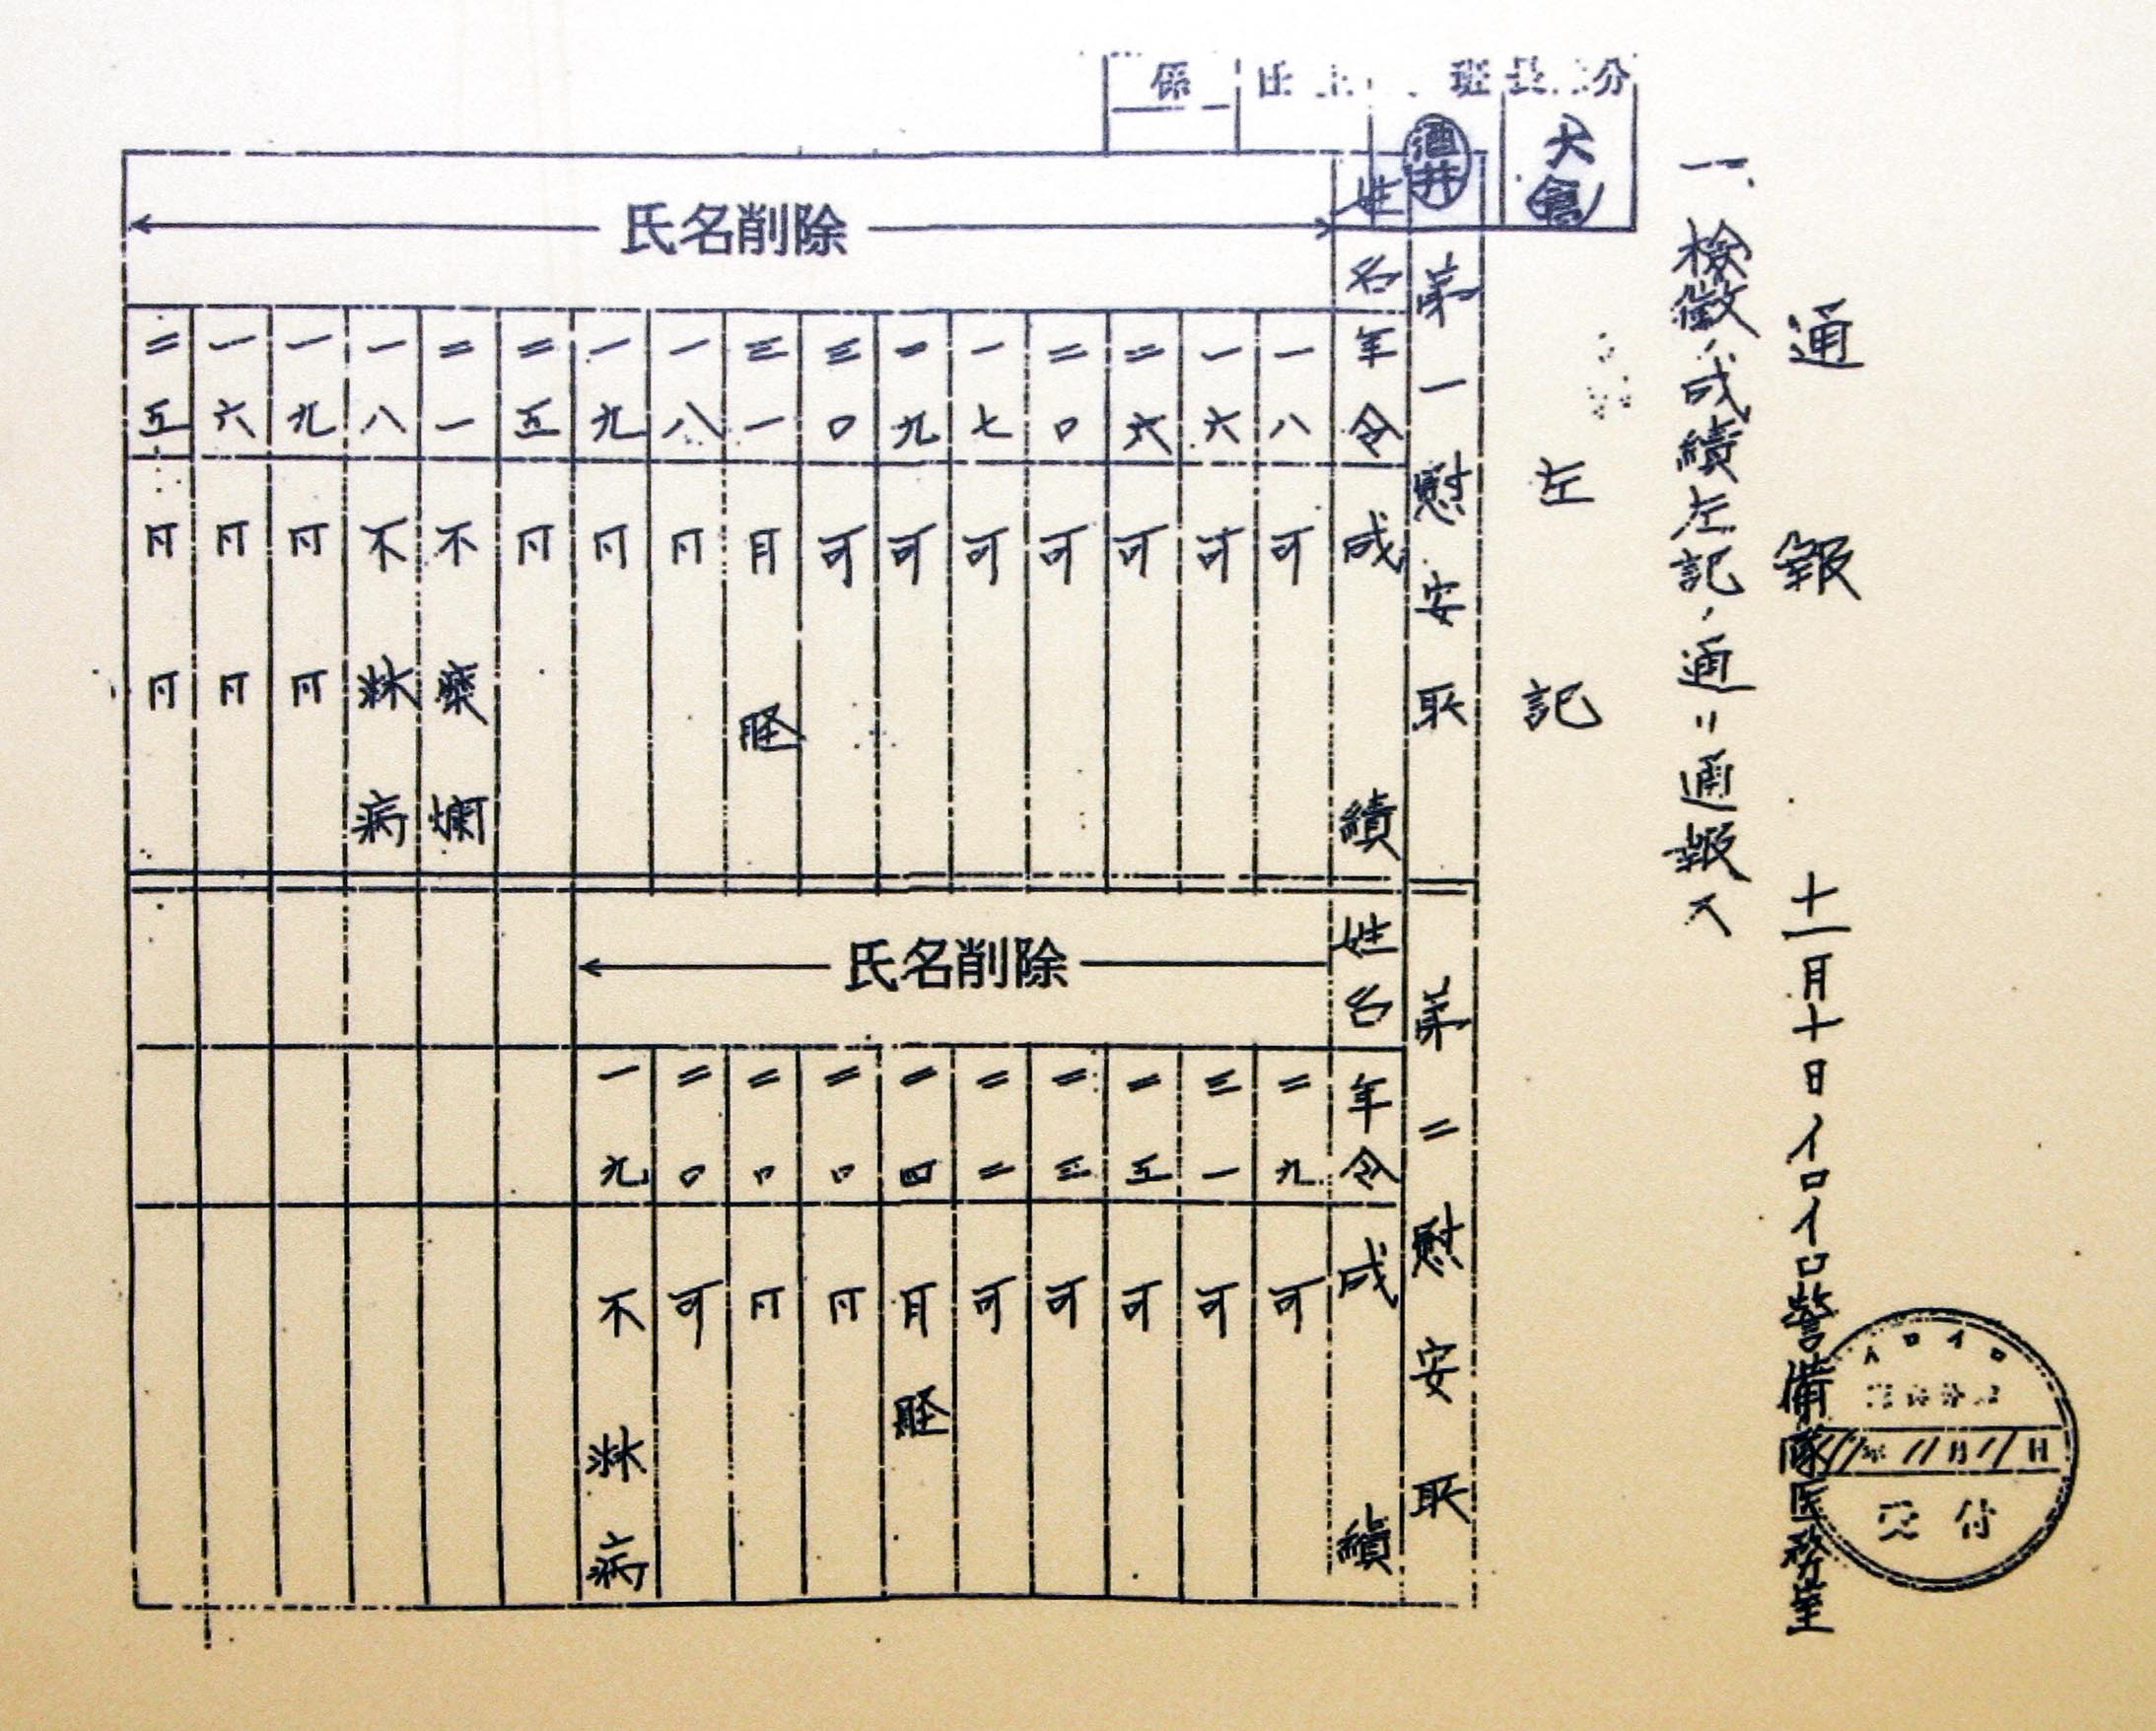 通報
十一月十日 イロイロ警備隊医務室
受付
一、検黴ノ成績左記ノ通リ通報ス
左記
分
長
班
係
大倉
酒井
第一慰安所
姓名 年令 成績
氏名削除
一八 可
一六 可
二六 可
二〇 可
一七 可
二九 可
三〇 可
三一 月経
一八
一九
二五
二一 不 糜爛
一八 不 淋病
一九
一六
二五
第二慰安所
姓名 年令 成績
氏名削除
二九 可
三一 可
二五 可
二三 可
二二 可
二四 月経
二〇
二〇
二〇 可
一九 不 淋病